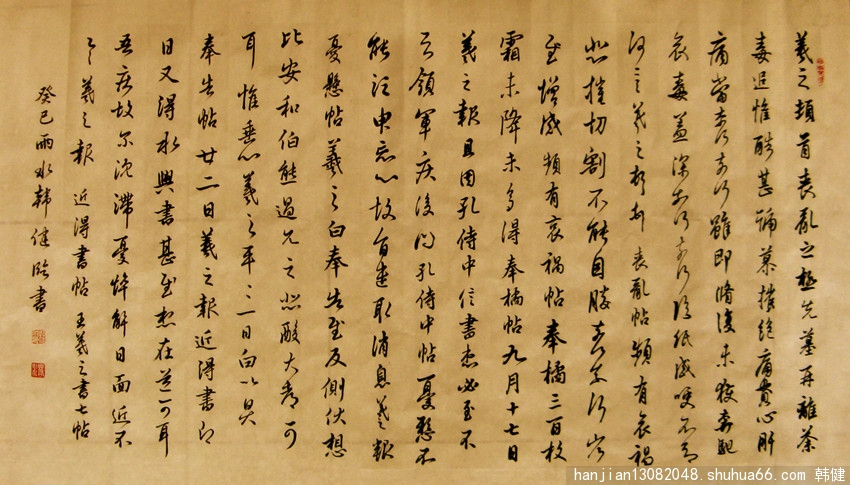 羲之頓首喪亂之極先墓再離荼
毒追惟酷甚號慕摧絕痛貫心肝
痛當奈何奈何雖即脩復未獲奔馳
哀毒益深奈何奈何臨紙感哽不知
何言羲之頓首喪亂帖頻有哀禍
悲摧切割不能自勝奈何奈何省
慰增感頻有哀禍帖奉橘三百枚
霜未降未可多得奉橘帖九月十七日
羲之報且因孔侍中信書想必至不
知領軍疾後問孔侍中帖憂懸不
能須臾忘心故旨遣取消息羲之報
憂懸帖羲之白奉告慰反側伏想
比安和伯熊過見之悲酸大都可
耳惟垂心羲之平三日白以具
奉告帖廿二日羲之報近得書即
日又得永興書甚慰想在道可耳
吾疾故爾沈滯憂悴解日面近不
具羲之報 近得書帖 王羲之書七帖
癸巳雨水韓健臨書
hanjian13082048.shuhua66.com 韩健